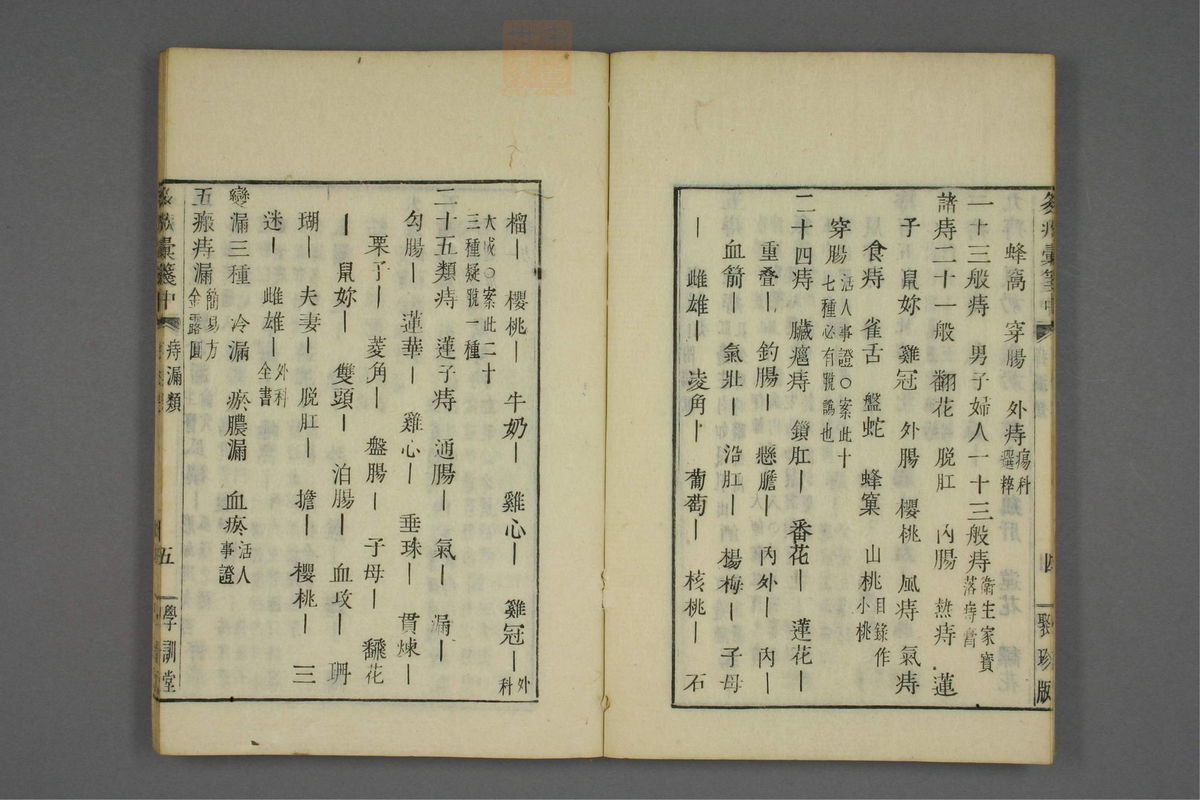 蜂窩 穿腸 外痔 瘍科選粹
一十三般痔 男子婦人一十三般痔 衛生家寶落痔膏
諸痔二十一般 翻花 脱肛 內腸 熱痔 蓮
子 鼠妳 雞冠 外腸 櫻桃 風痔 氣痔
食痔 雀舌 盤蛇 蜂窠 山桃 目錄作小桃
穿腸 活人事證○案此十七種必有號譌也
二十四痔 臟癰痔 鎖肛― 番花― 蓮花―
重叠― 釣腸― 懸膽― 內外― 內―
血箭― 氣壯― 沿肛― 楊梅― 子母
― 雌雄― 凌角― 葡萄― 核桃― 石
四
聚珍版
榴― 櫻桃― 牛奶― 雞心― 雞冠― 外科
大成○案此二十三種疑號一種
二十五類痔 蓮子痔 通腸― 氣― 漏―
勾腸― 蓮華― 雞心― 垂珠― 貫煉―
栗子― 菱角― 盤腸― 子母― 飜花
― 鼠妳― 雙頭― 泊腸― 血攻― 珊
瑚― 夫妻― 脱肛― 擔― 櫻桃― 三
迷― 雌雄― 外科全書
變漏三種 冷漏 瘀膿漏 血疼 活人事證
五瘢痔漏 簡易方金露圓
痔漏類
五
學訓堂